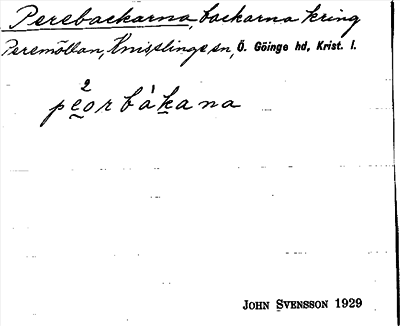 Perebackarna, backarna kring
Peremöllan, Knisslinge sn, Ö. Göinge hd, Krist. l.
2
peorbàkana
JOHN SVENSSON 1929